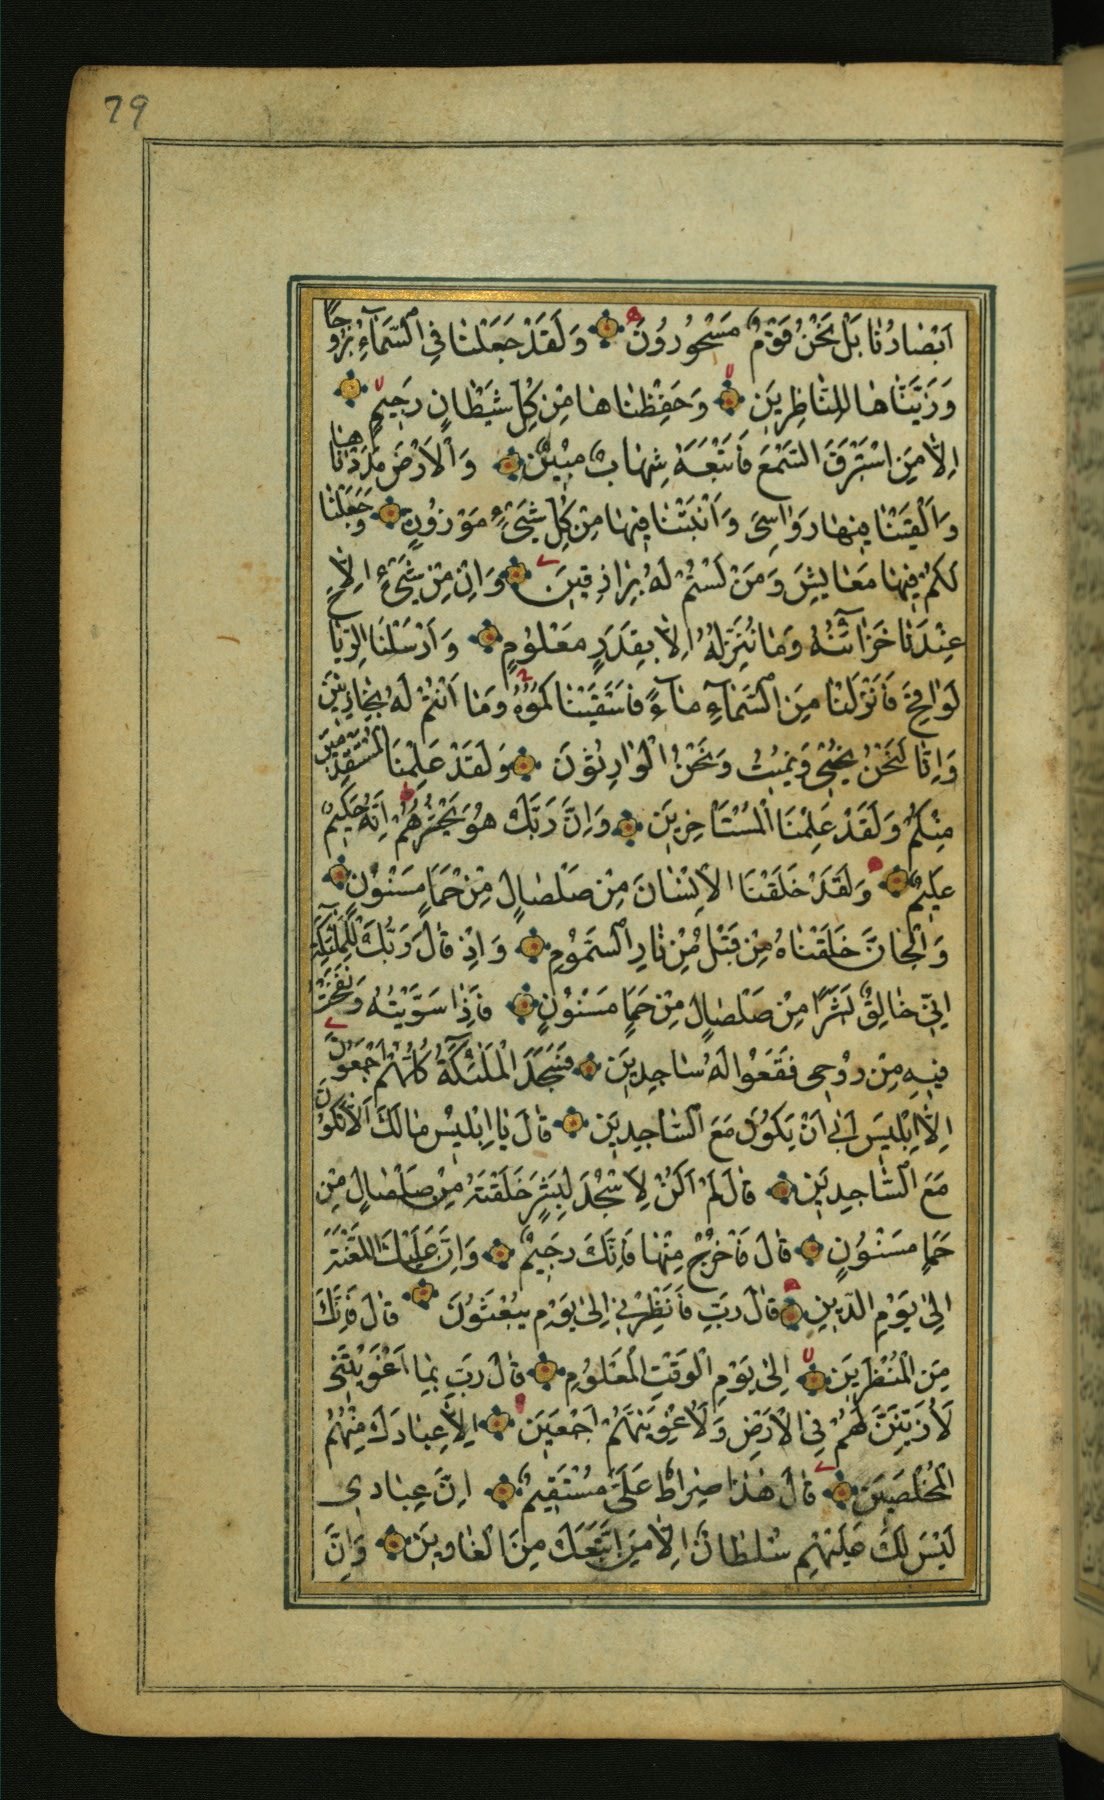 79
اَبْصَارُنَا بَلْ نَحْنُ قَوْمٌ مَسْحُورُونَ وَلَقَدْ جَعَلْنَا فِي السَّمَآءِ بُرُوجًا
وَزَيَّنَّاهَا لِلنَّاظِرِينَ وَحَفِظْنَاهَا مِنْ كُلِّ شَيْطَانٍ رَجِيمٍ
اِلَّا مَنِ اسْتَرَقَ السَّمْعَ فَاَتْبَعَهُ شِهَابٌ مُبِينٌ وَالْاَرْضَ مَدَدْنَاهَا
وَاَلْقَيْنَا فِيهَا رَوَاسِيَ وَاَنْبَتْنَا فِيهَا مِنْ كُلِّ شَيْءٍ مَوْزُونٍ وَجَعَلْنَا
لَكُمْ فِيهَا مَعَايِشَ وَمَنْ لَسْتُمْ لَهُ بِرَازِقِينَ وَاِنْ مِنْ شَيْءٍ اِلَّا
عِنْدَنَا خَزَآئِنُهُ وَمَا نُنَزِّلُهُ اِلَّا بِقَدَرٍ مَعْلُومٍ وَاَرْسَلْنَا الرِّيَاحَ
لَوَاقِحَ فَاَنْزَلْنَا مِنَ السَّمَآءِ مَآءً فَاَسْقَيْنَاكُمُوهُ وَمَا اَنْتُمْ لَهُ بِخَازِنِينَ
وَاِنَّا لَنَحْنُ نُحْيِي وَنُمِيتُ وَنَحْنُ الْوَارِثُونَ وَلَقَدْ عَلِمْنَا الْمُسْتَقْدِمِينَ
مِنْكُمْ وَلَقَدْ عَلِمْنَا الْمُسْتَاْخِرِينَ وَاِنَّ رَبَّكَ هُوَ يَحْشُرُهُمْ اِنَّهُ حَكِيمٌ
عَلِيمٌ وَلَقَدْ خَلَقْنَا الْاِنْسَانَ مِنْ صَلْصَالٍ مِنْ حَمَاٍ مَسْنُونٍ
وَالْجَانَّ خَلَقْنَاهُ مِنْ قَبْلُ مِنْ نَارِ السَّمُومِ وَاِذْ قَالَ رَبُّكَ لِلْمَلٰئِكَةِ
اِنِّي خَالِقٌ بَشَرًا مِنْ صَلْصَالٍ مِنْ حَمَاٍ مَسْنُونٍ فَاِذَا سَوَّيْتُهُ وَنَفَخْتُ
فِيهِ مِنْ رُوحِي فَقَعُوا لَهُ سَاجِدِينَ فَسَجَدَ الْمَلٰئِكَةُ كُلُّهُمْ اَجْمَعُونَ
اِلَّا اِبْلِيسَ اَبٰى اَنْ يَكُونَ مَعَ السَّاجِدِينَ قَالَ يَا اِبْلِيسُ مَا لَكَ اَلَّا تَكُونَ
مَعَ السَّاجِدِينَ قَالَ لَمْ اَكُنْ لِاَسْجُدَ لِبَشَرٍ خَلَقْتَهُ مِنْ صَلْصَالٍ مِنْ
حَمَاٍ مَسْنُونٍ قَالَ فَاخْرُجْ مِنْهَا فَاِنَّكَ رَجِيمٌ وَاِنَّ عَلَيْكَ اللَّعْنَةَ
اِلٰى يَوْمِ الدِّينِ قَالَ رَبِّ فَاَنْظِرْنِي اِلٰى يَوْمِ يُبْعَثُونَ قَالَ فَاِنَّكَ
مِنَ الْمُنْظَرِينَ اِلٰى يَوْمِ الْوَقْتِ الْمَعْلُومِ قَالَ رَبِّ بِمَا اَغْوَيْتَنِي
لَاُزَيِّنَنَّ لَهُمْ فِي الْاَرْضِ وَلَاُغْوِيَنَّهُمْ اَجْمَعِينَ اِلَّا عِبَادَكَ مِنْهُمُ
الْمُخْلَصِينَ قَالَ هٰذَا صِرَاطٌ عَلَيَّ مُسْتَقِيمٌ اِنَّ عِبَادِي
لَيْسَ لَكَ عَلَيْهِمْ سُلْطَانٌ اِلَّا مَنِ اتَّبَعَكَ مِنَ الْغَاوِينَ وَاِنَّ